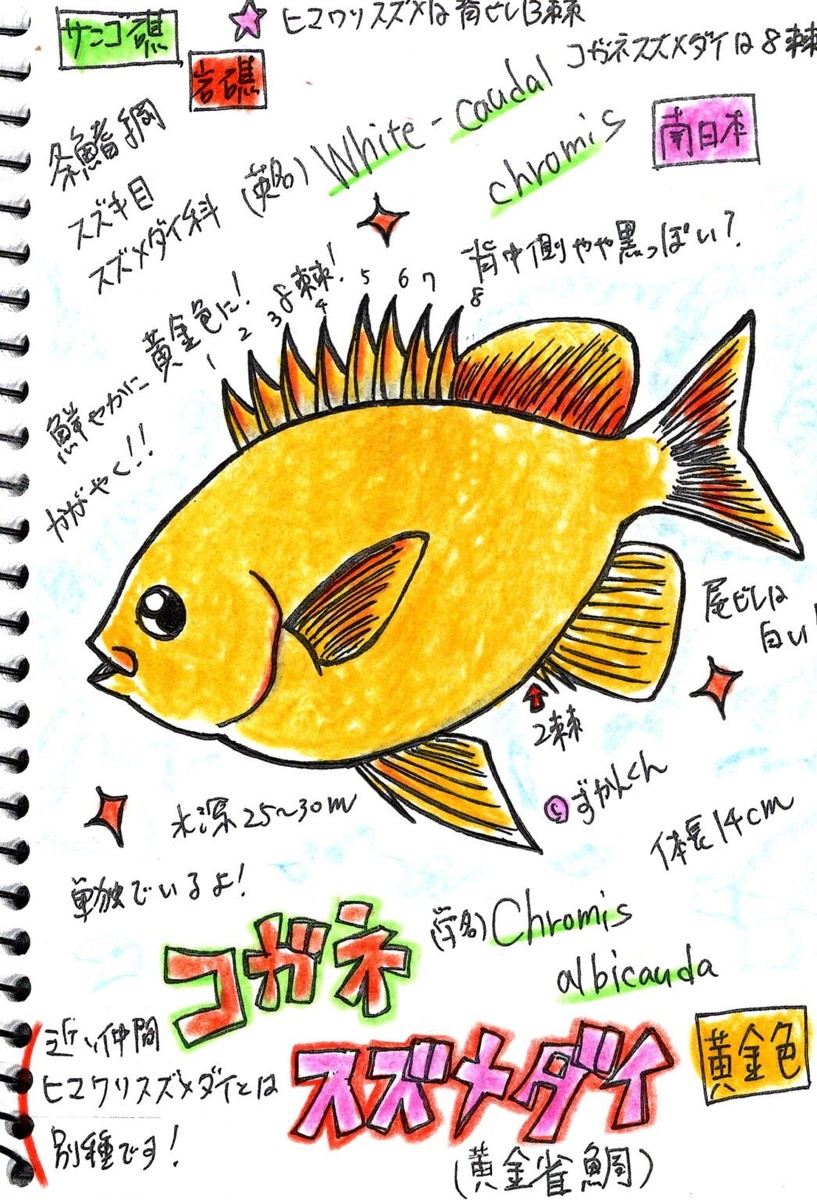 サンゴ礁
岩礁
ヒマワリスズメは背ビレ13棘
コガネスズメダイは8棘
条鰭綱
スズキ目
スズメダイ科
(英名) White-caudal
chromis
南日本
鮮やかに黄金色に!
かがやく!!
8棘!
背中側やや黒っぽい?
1 2 3 4 5 6 7 8
尾ビレは
白い!
2棘
©ずかんくん
水深25~30m
体長14cm
単独でいるよ!
コガネ
スズメダイ
(黄金雀鯛)
(学名) Chromis
albicauda
黄金色
近い仲間
ヒマワリスズメダイとは
別種です!